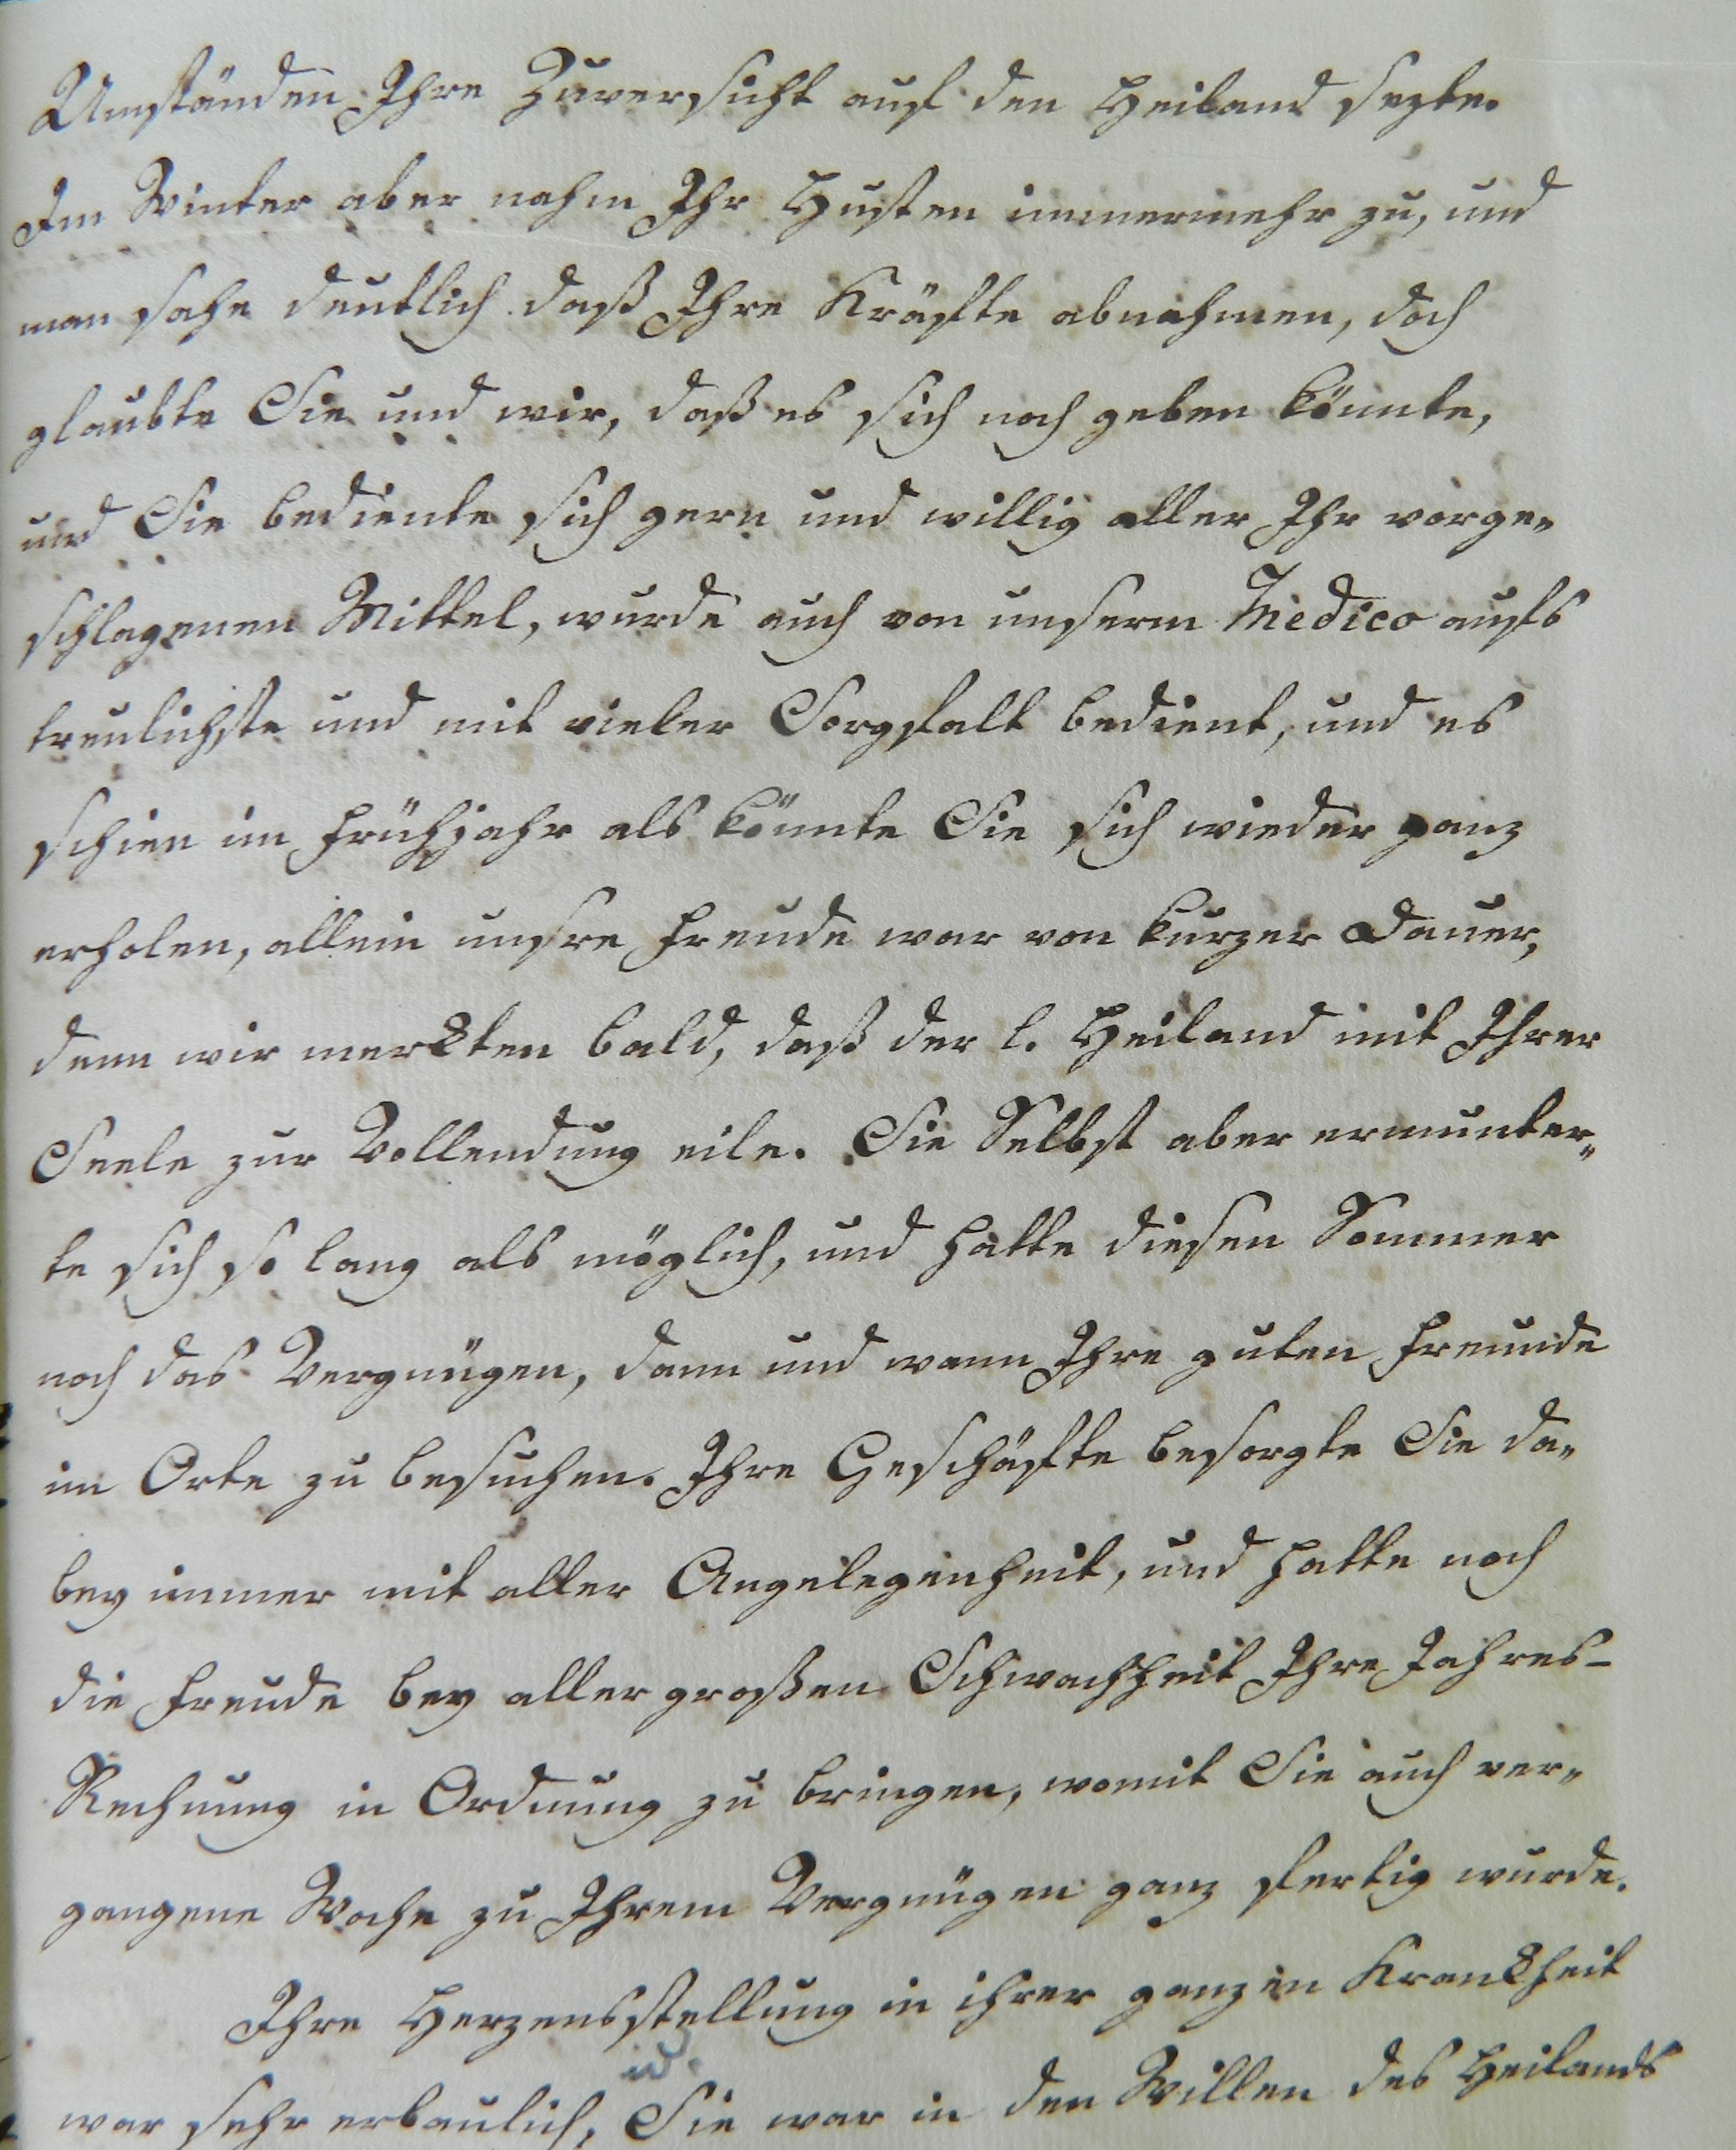 Umständen Ihre Zuversicht auf den Heiland sezte.
Im Winter aber nahm Ihr Husten immermehr zu, und
man sahe deutlich daß Ihre Kräfte abnahmen, doch
glaubte Sie und wir, daß es sich noch geben könnte,
und Sie bediente sich gern und willig aller Ihr vorge„
schlagenen Mittel, wurde auch von unserm Medico aufs
treulichste und mit vieler Sorgfalt bedient, und es
schien im Frühjahr als könnte Sie sich wieder ganz
erholen, allein unsre Freude war von kurzer Dauer,
denn wir merkten bald, daß der l. Heiland mit Ihrer
Seele zur Vollendung eile. Sie Selbst aber ermunter„
te sich so lang als möglich, und hatte diesen Sommer
noch das Vergnügen, dann und wann Ihre guten Freunde
im Orte zu besuchen. Ihre Geschäfte besorgte Sie da„
bey immer mit aller Angelegenheit, und hatte noch
die Freude bey aller großen Schwachheit Ihre Jahres-
Rechnung in Ordnung zu bringen, womit Sie auch ver„
gangene Woche zu Ihrem Vergnügen ganz fertig wurde.
Ihre Herzensstellung in ihrer ganzen Krankheit
war sehr erbaulich, u. Sie war in den Willen des Heilands